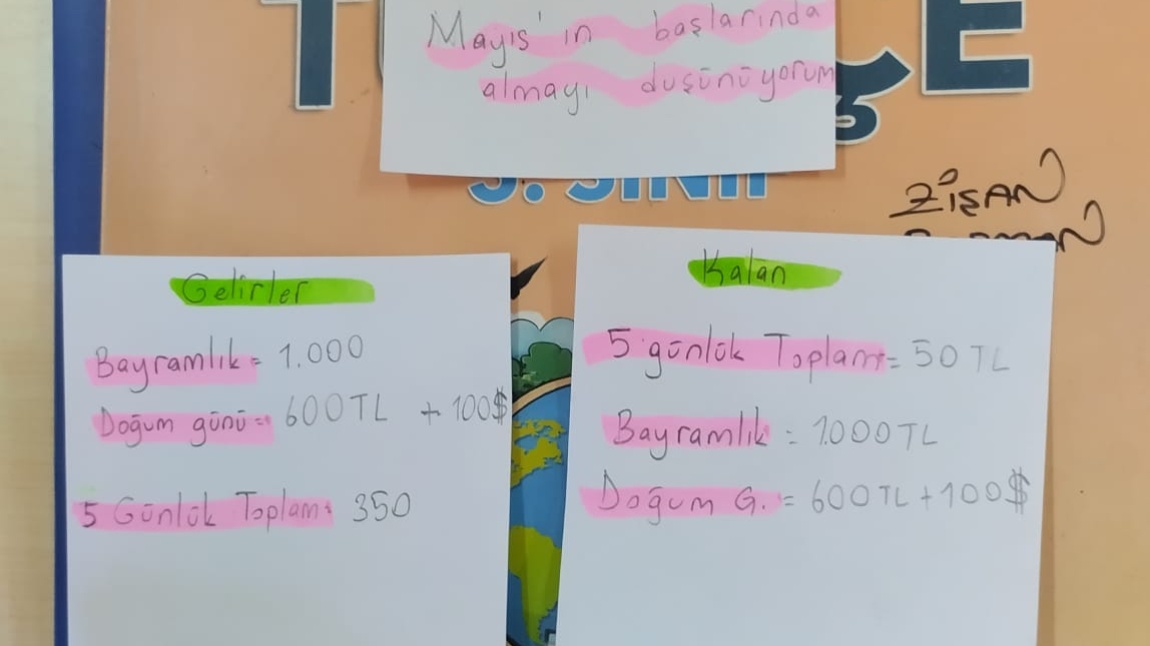 Mayıs'ın başlarında
almayı düşünüyorum
5. SINIF
ZİŞAN
Gelirler
Bayramlık = 1.000
Doğum günü = 600TL + 100$
5 Günlük Toplam: 350
Kalan
5 günlük Toplam = 50 TL
Bayramlık = 1.000 TL
Doğum G. = 600 TL + 100$